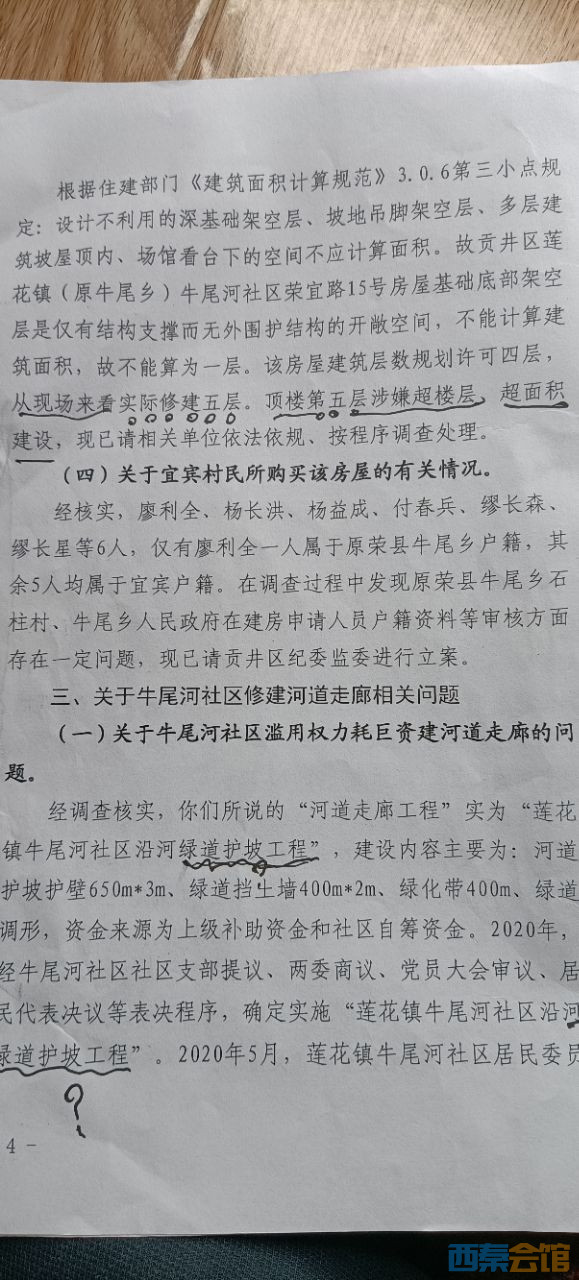 根据住建部门《建筑面积计算规范》3.0.6第三小点规
定：设计不利用的深基础架空层、坡地吊脚架空层、多层建
筑坡屋顶内、场馆看台下的空间不应计算面积。故贡井区莲
花镇（原牛尾乡）牛尾河社区荣宜路15号房屋基础底部架空
层是仅有结构支撑而无外围护结构的开敞空间，不能计算建
筑面积，故不能算为一层。该房屋建筑层数规划许可四层，
从现场来看实际修建五层。顶楼第五层涉嫌超楼层、超面积
建设，现已请相关单位依法依规、按程序调查处理。
（四）关于宜宾村民所购买该房屋的有关情况。
经核实，廖利全、杨长洪、杨益成、付春兵、缪长森、
缪长星等6人，仅有廖利全一人属于原荣县牛尾乡户籍，其
余5人均属于宜宾户籍。在调查过程中发现原荣县牛尾乡石
柱村、牛尾乡人民政府在建房申请人员户籍资料等审核方面
存在一定问题，现已请贡井区纪委监委进行立案。
三、关于牛尾河社区修建河道走廊相关问题
（一）关于牛尾河社区滥用权力耗巨资建河道走廊的问
题。
经调查核实，你们所说的“河道走廊工程”实为“莲花
镇牛尾河社区沿河绿道护坡工程”，建设内容主要为：河道
护坡护壁650m*3m、绿道挡土墙400m*2m、绿化带400m、绿道
调形，资金来源为上级补助资金和社区自筹资金。2020年，
经牛尾河社区社区支部提议、两委商议、党员大会审议、居
民代表决议等表决程序，确定实施“莲花镇牛尾河社区沿河
绿道护坡工程”。2020年5月，莲花镇牛尾河社区居民委员
?
4 -
西秦会馆